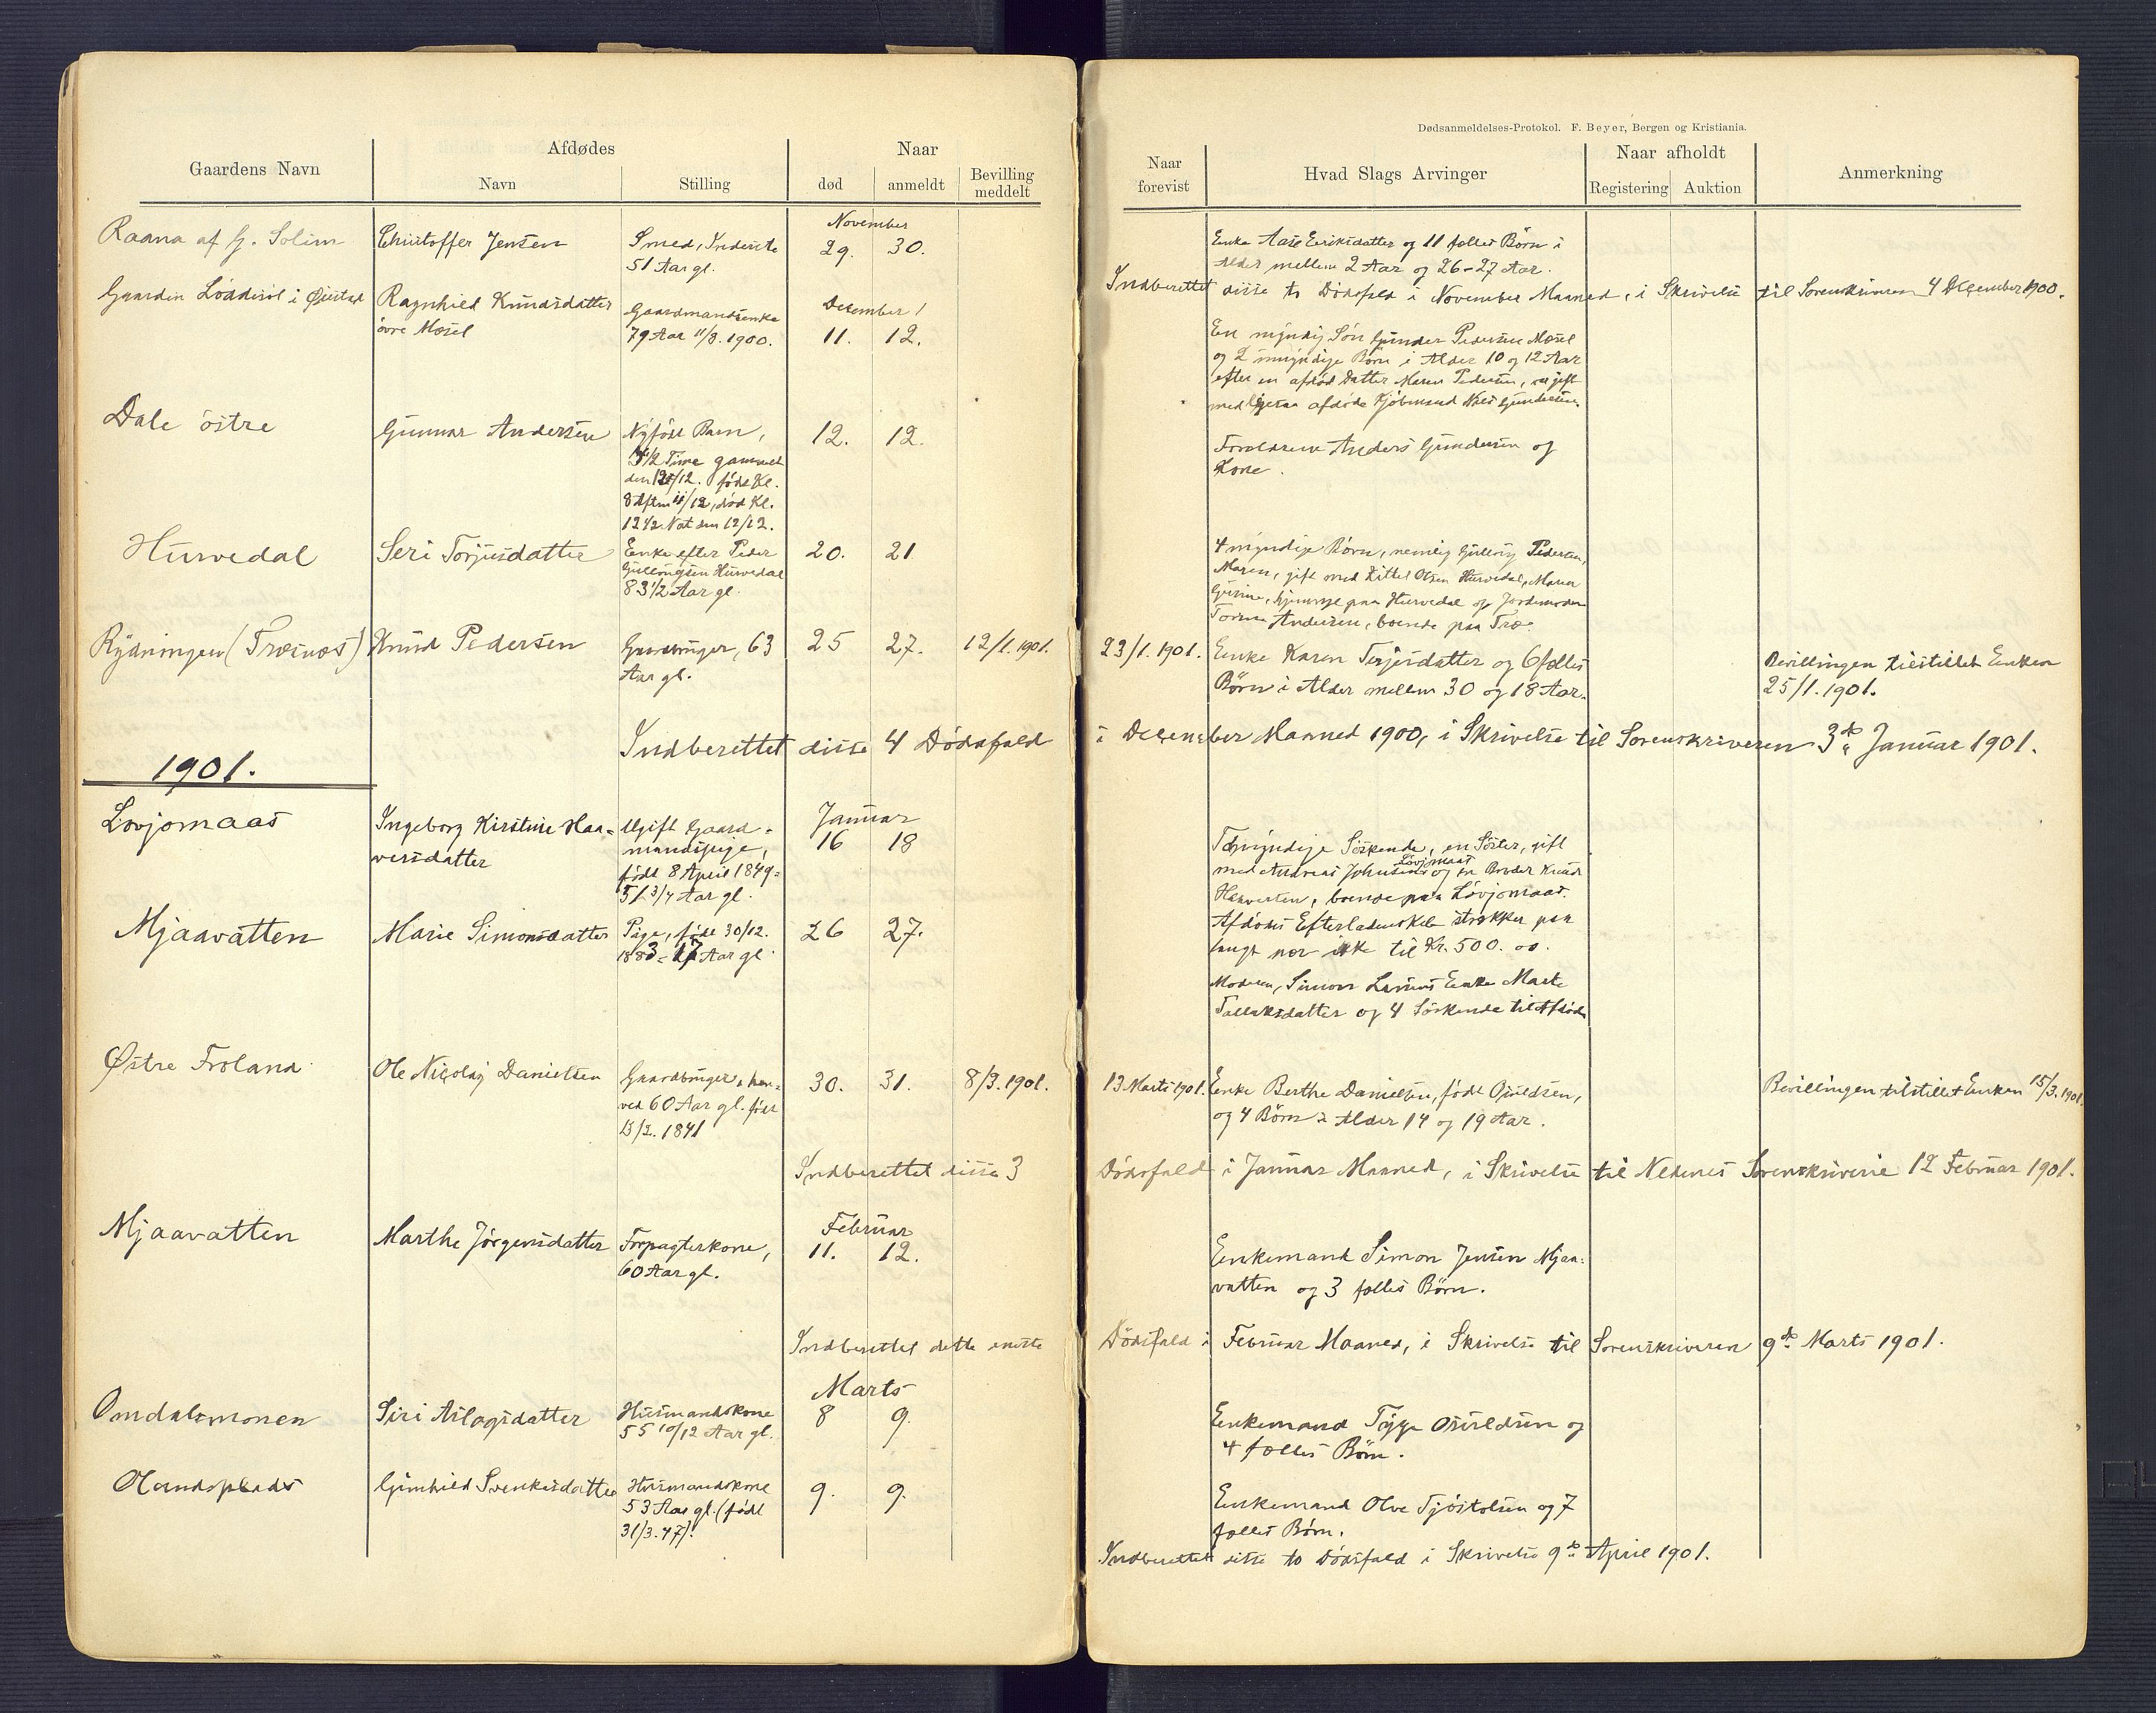 Dødsanmeldelses-Protokol. F. Beyer, Bergen og Kristiania.
Gaardens Navn
Afdødes
Navn
Stilling
Naar
død
anmeldt
Bevilling
meddelt
Naar
forevist
Hvad Slags Arvinger
Naar afholdt
Registering
Auktion
Anmerkning
Raana af G. Solim
Christoffer Jensen
Smed, Inderste
51 Aar gl.
November
29. 30.
Enke Aase Eeriksdatter og 11 fælles Børn i
Alder mellem 2 Aar og 26-27 Aar.
Indberettet disse to Dødsfald i November Maaned, i Skrivelse til Sorenskriveren 4 December 1900.
Gaarden Løddesøl i Øiestad
Ragnhild Knudsdatter
øvre Mosel
Gaardmandsenke
79 Aar 11/3. 1900.
December
11. 12.
En myndig Søn Gunder Pedersen Mosel
og 2 umyndige Børn i Alder 10 og 12 Aar
efter en afdød Datter Maren Pedersen, gift
med afdøde Kjøbmand Nils Gundersen.
Dale østre
Gunnar Andersen
Nyfødt Barn,
4 1/2 Time gammelt
den 12/12. født Kl.
8 Aften 11/12, død Kl.
12 1/2 Nat den 12/12.
12. 12.
Forældrene Anders Gundersen og
Kone.
Hurvedal
Seri Torjusdatter
Enke efter Peder
Gullougsen Hurvedal
83 1/2 Aar gl.
20. 21
4 myndige Børn, nemlig Gulloug Pedersen,
Maren, gift med Kittel Olsen Hurvedal, Maren
Gurine, hjemme paa Hurvedal og Jordemoder
Andersen, boende paa Træ.
Rydningen (Træinæs)
Knud Pedersen
Gaardbruger, 63
Aar gl.
25 27. 12/1. 1901.
23/1. 1901.
Enke Karen Terjesdatter og 6 fælles
Børn i Alder mellem 30 og 18 Aar.
Bevillingen tilstillet Enken
25/1. 1901.
Indberettet disse 4 Dødsfald i December Maaned 1900, i Skrivelse til Sorenskriveren 3de Januar 1901.
1901.
Løvjomaas
Ingeborg Kirstine Haa=
versdatter
Ugift Gaard=
mandspige,
født 8 April 1849=
51 3/4 Aar gl.
Januar
16 18
To myndige Søskende, en Søster, gift
med Andreas Johnsen Løvjomaas og en Broder Knud
Haaversen, boende paa Løvjomaas.
Afdødes Efterladenskab strækker paa
langt nær ikke til Kr. 500. 00.
Mjaavatten
Marie Simonsdatter
Pige, født 30/12.
1883 = 17 Aar gl.
26 27.
Moderen, Simon Larsens Enke Marte
Tallaksdatter og 4 Søskende til Afdøde
Østre Froland
Ole Nicolaj Danielsen
Gaardbruger, hen=
ved 60 Aar gl. født
13/2. 1841
30. 31. 8/3. 1901.
13. Marts 1901.
Enke Berthe Danielsen, født Osuldsen,
og 4 Børn i Alder 14 og 19 Aar.
Bevillingen tilstillet Enken 15/3. 1901.
Indberettet disse 3 Dødsfald i Januar Maaned, i Skrivelse til Nedenes Sorenskriverie 12 Februar 1901.
Mjaavatten
Marthe Jørgensdatter
Forpagterkone,
60 Aar gl.
Februar
11. 12.
Enkemand Simon Jensen Mjaa=
vatten og 3 fælles Børn.
Indberettet dette eneste Dødsfald i Februar Maaned, i Skrivelse til Sorenskriveren 9de Marts 1901.
Omdalsmonen
Siri Aslagsdatter
Husmandskone
55 10/12 Aar gl.
Marts
8 9.
Enkemand Tygge Osuldsen og
4 fælles Børn.
Olandsplads
Gunhild Svenkesdatter
Husmandskone
53 Aar gl. (født
31/3. 47).
9. 9.
Enkemand Olve Tjøstolsen og 7
fælles Børn.
Indberettet disse to Dødsfald i Skrivelse 9de April 1901.